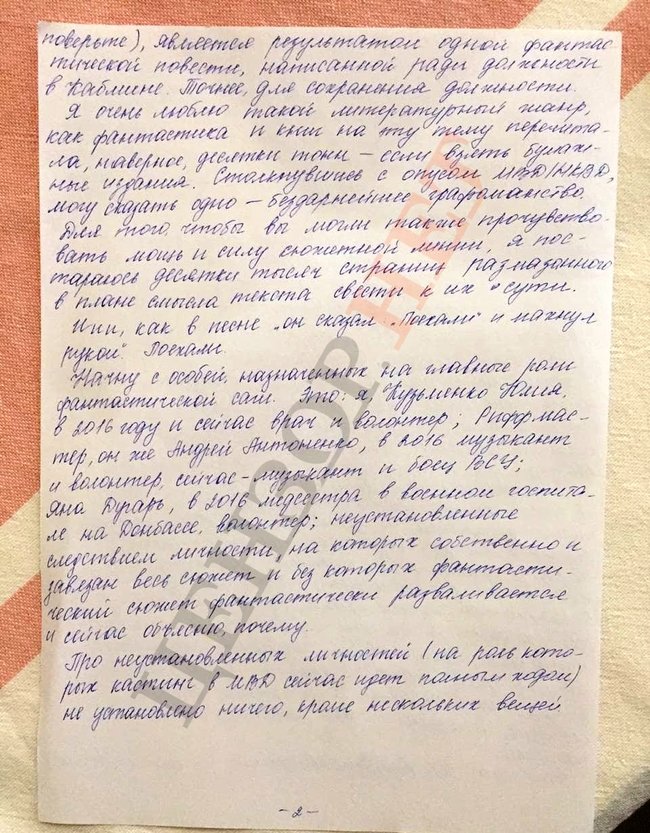 поверьте), является результатом одной фантас
тической повести, написанной ради должности
в Кабмине. Точнее, для сохранения должности.
Я очень люблю такой литературный жанр,
как фантастика и книг на эту тему перечита-
ла, наверное, десятки тонн – если взять бумаж-
ные издания. Столкнувшись с опусом МВД/НКВД,
могу сказать одно – бездарнейшее графоманство.
Для того чтобы вы могли также прочувство-
вать мощь и силу сюжетной линии, я пос-
тараюсь десятки тысяч страниц размазанного
в плане смысла текста свести к их сути.
Или, как в песне „он сказал „Поехали" и махнул
рукой". Поехали.
Начну с особей, назначенных на главные роли
фантастической саги. Это: я, Кузьменко Юлия,
в 2016 году и сейчас врач и волонтер; Риффмас-
тер, он же Андрей Антоненко, в 2016 музыкант
и волонтер, сейчас – музыкант и боец ССО;
Яна Дугарь, в 2016 медсестра в военном госпита-
ле на Донбассе, волонтер; неустановленные
следствием личности, на которых собственно и
завязан весь сюжет и без которых фантасти-
ческий сюжет фантастически разваливается
и сейчас объясню, почему.
Про неустановленных личностей (на роль кото-
рых кастинг в МВД сейчас идет полным ходом)
не установлено ничего, кроме нескольких вещей
– 2 –
ЦЕНЗОР.НЕТ